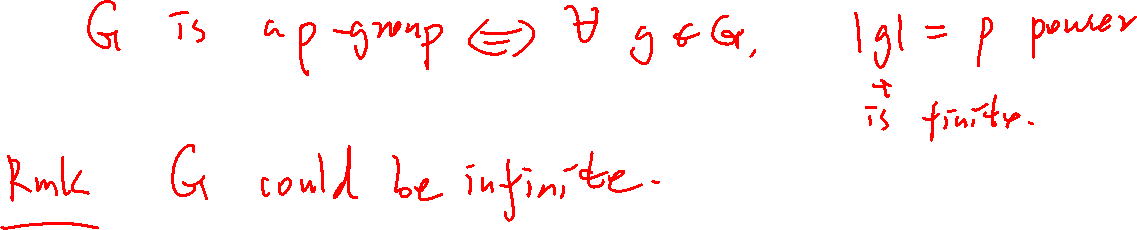 G is a p-group ⇔ ∀ g ∈ G, |g| = p power
+
is finite.
Rmk G could be infinite.